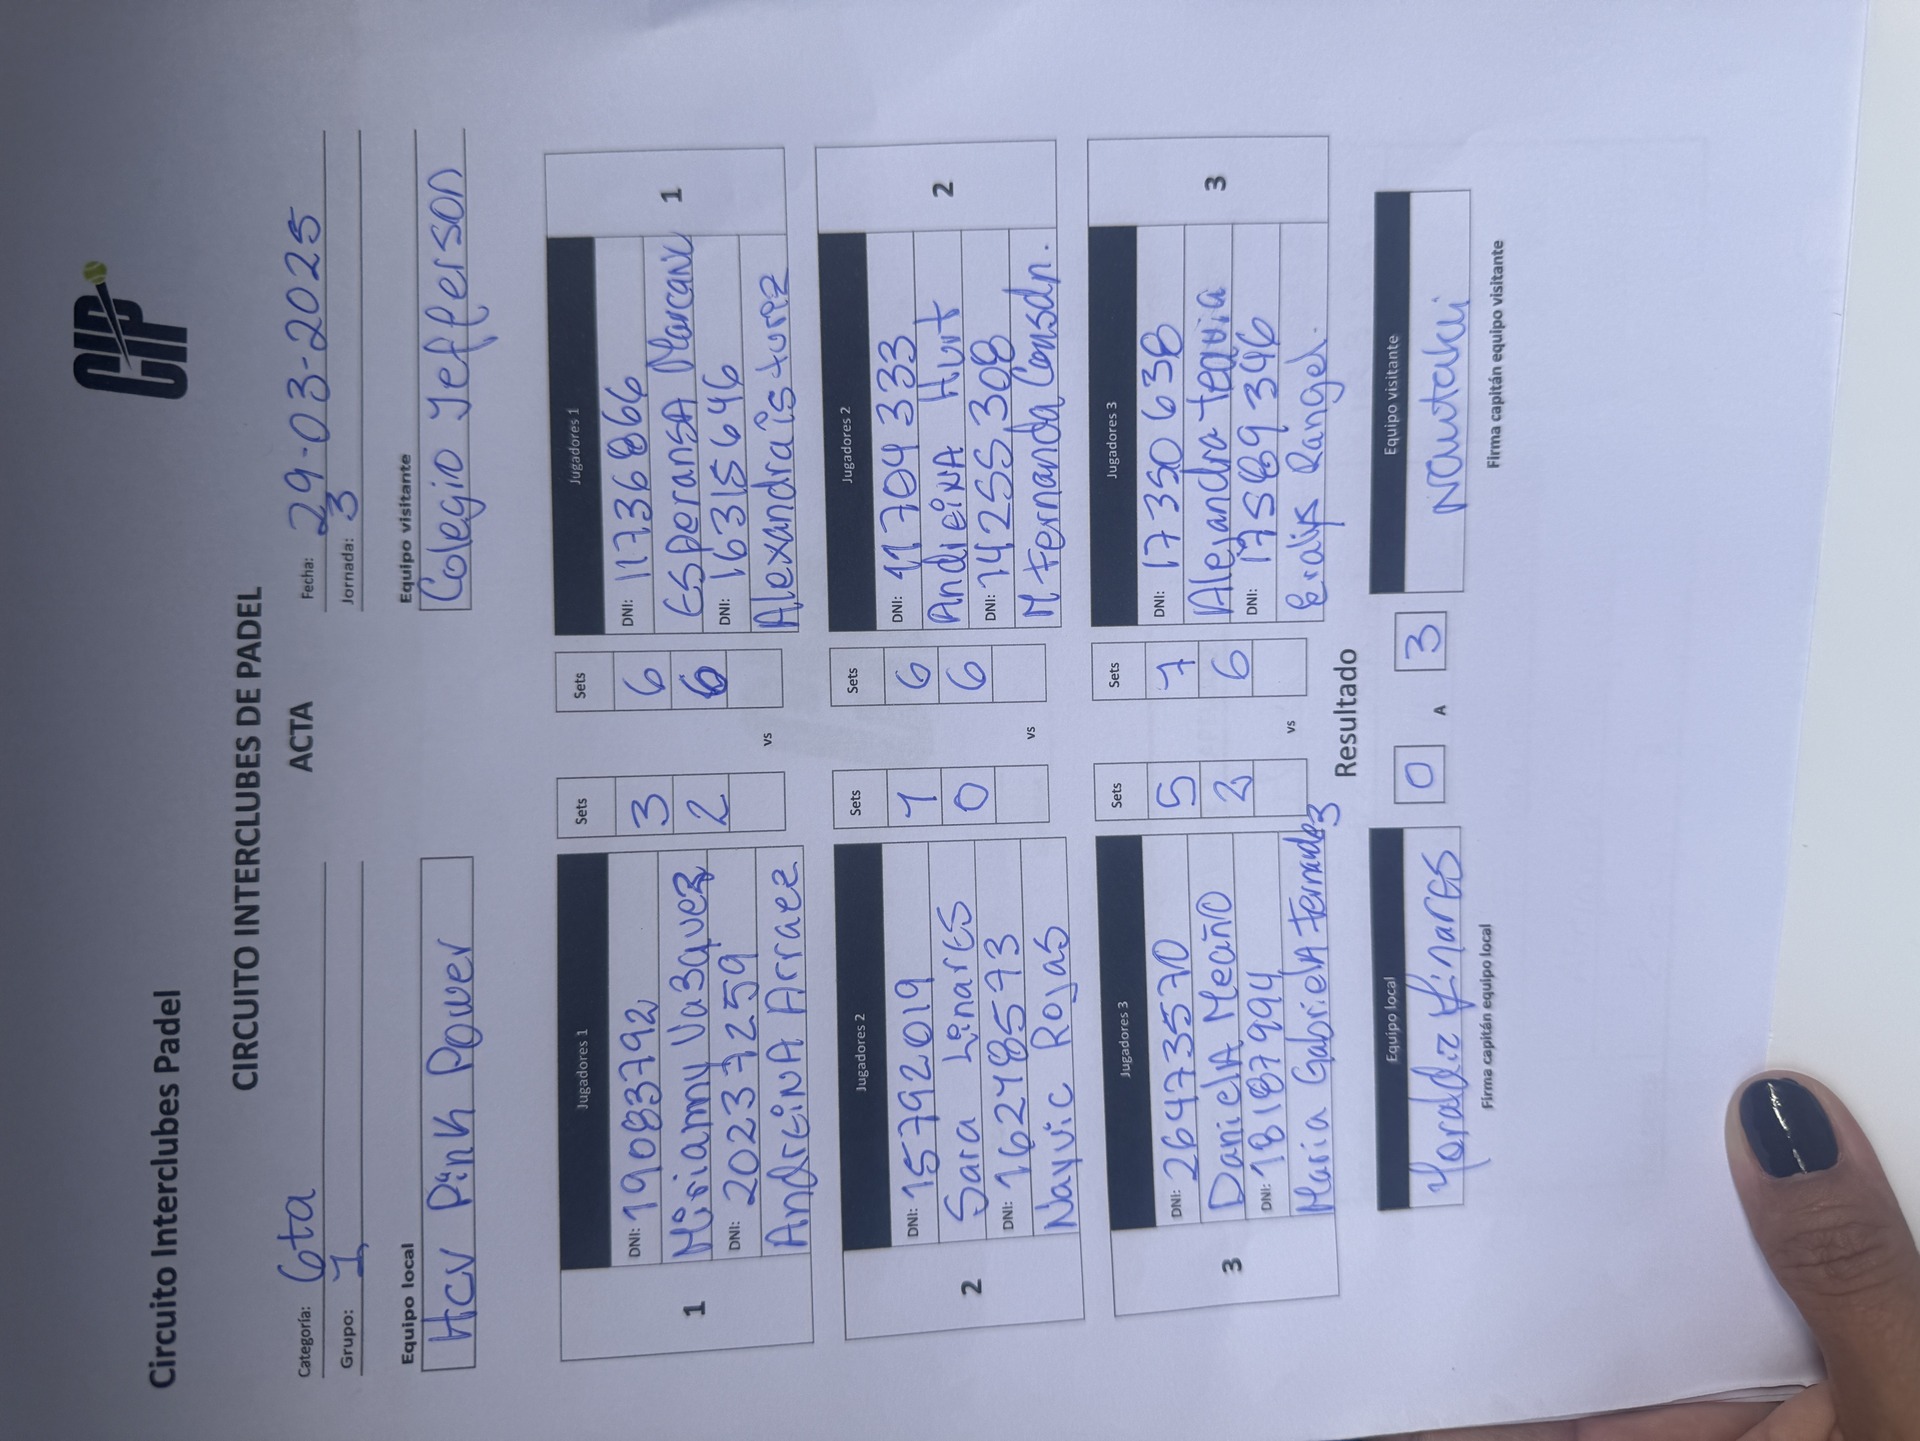 Circuito Interclubes Padel
CIP
CIRCUITO INTERCLUBES DE PADEL
ACTA
Categoría: 6ta Fecha: 29-03-2025
Grupo: 1 Jornada: 3
Equipo local Equipo visitante
HCV Pink Power Colegio Jefferson
Jugadores 1 Sets Sets Jugadores 1
DNI: 19083792 3 6 DNI: 11736866
Miriamny Va3quez 2 6 ESperanSA Marcano
1 DNI: 20237259 vs DNI: 16315646 1
AndreinA Arraez Alexandra istúrez
Jugadores 2 Sets Sets Jugadores 2
DNI: 15792019 1 6 DNI: 11704333
Sara Linares 0 6 AndreiNA Hurt
2 DNI: 16248573 vs DNI: 14255308 2
Nayvic Rojas M. Fernanda
Jugadores 3 Sets Sets Jugadores 3
DNI: 26473570 5 7 DNI: 17350638
DanielA Mecaño 2 6 Alejandra
3 DNI: 18187994 vs DNI: 17589346 3
María GabrielA Fernande3 Eralys Rangel.
Resultado
Equipo local 0 A 3 Equipo visitante
Yoraldiz Linares
Firma capitán equipo local Firma capitán equipo visitante